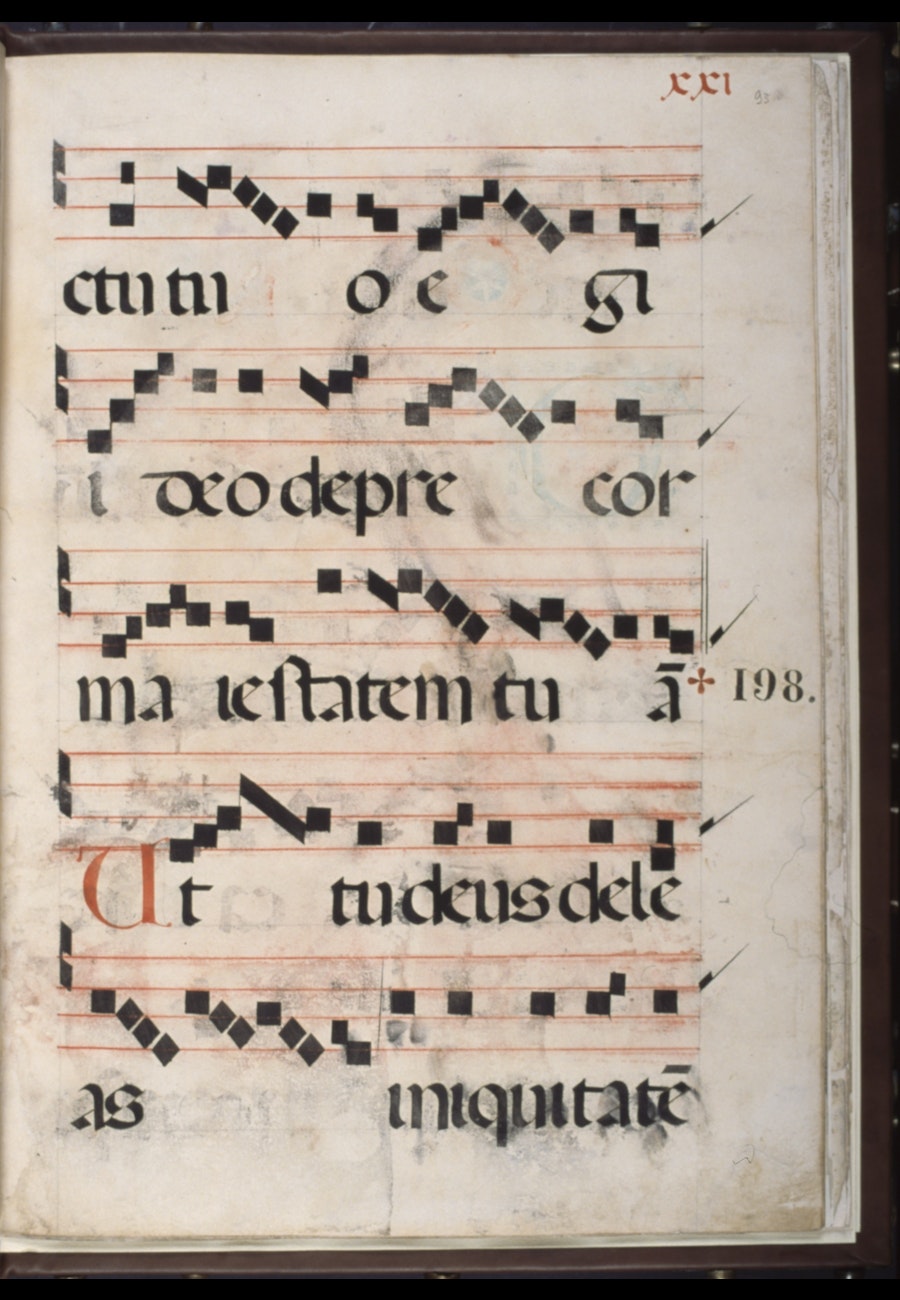 xxi 93
ctu tu o e gi
i deo depre cor
ma iestatem tu ā
✢ 198.
Ut tu deus dele
as iniquitatē